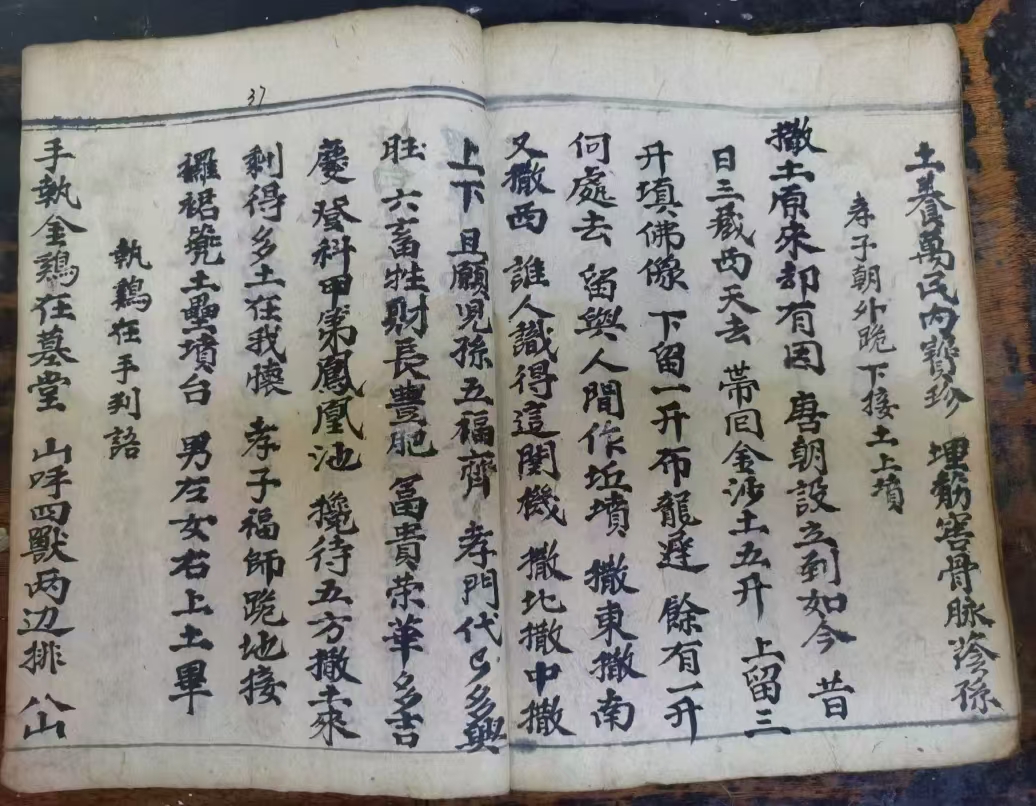 土養萬民内寶珍 埋葯窖骨脉蔭孫
孝子朝外跪下接土上墳
撒土原來却有因 唐朝設立到如今 昔
日三藏西天去 帯囘金沙土五升 上留三
升填佛像 下留一升布龍遅 餘有一升
何處去 留與人間作坵墳 撒東撒南
又撒西 誰人識得這関機 撒北撒中撒
上下 且願児孫五福齊 孝門代々多興
旺 六畜牲財長豊肥 富貴荣華多吉
慶 登科甲第鳳凰池 揽待五方撒土來
剩得多土在我懐 孝子福師跪地接
襬裙兠土壘墳台 男左女右上土畢
執鷄在手判語
手執金鷄在墓堂 山呼四獸两边排 八山
37